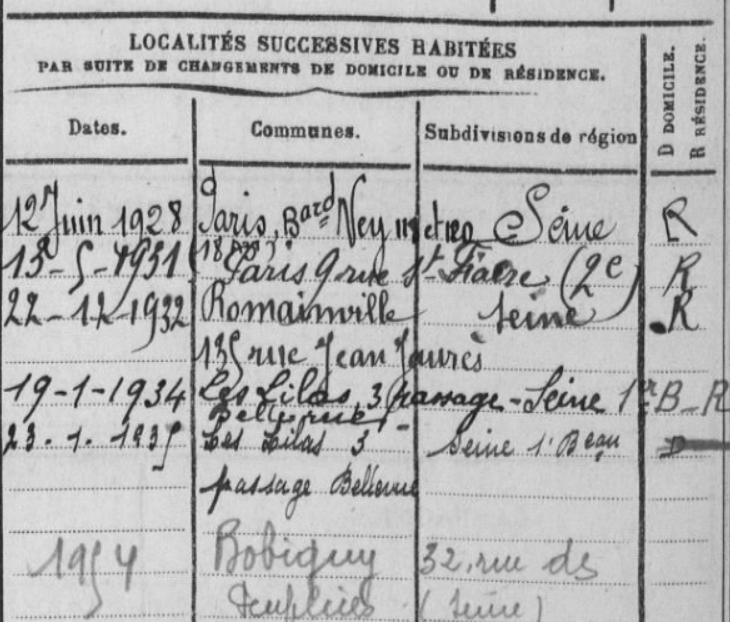 LOCALITÉS SUCCESSIVES HABITÉES
PAR SUITE DE CHANGEMENTS DE DOMICILE OU DE RÉSIDENCE.
D DOMICILE.
R RÉSIDENCE.
Dates. Communes. Subdivisions de région
12 Juin 1928 Paris, Bard Ney Seine R
13-5-1931 Paris 9 rue St Fiacre (2e) R
22-12-1932 Romainville Seine R
135 rue Jean Jaurès
19-1-1934 Les Lilas, 3 passage - Seine 1er B - R
Bellevue
23.1.1935 Les Lilas 3 Seine 1r Beau D
passage Bellevue
1954 Bobigny 32, rue des
(Seine)